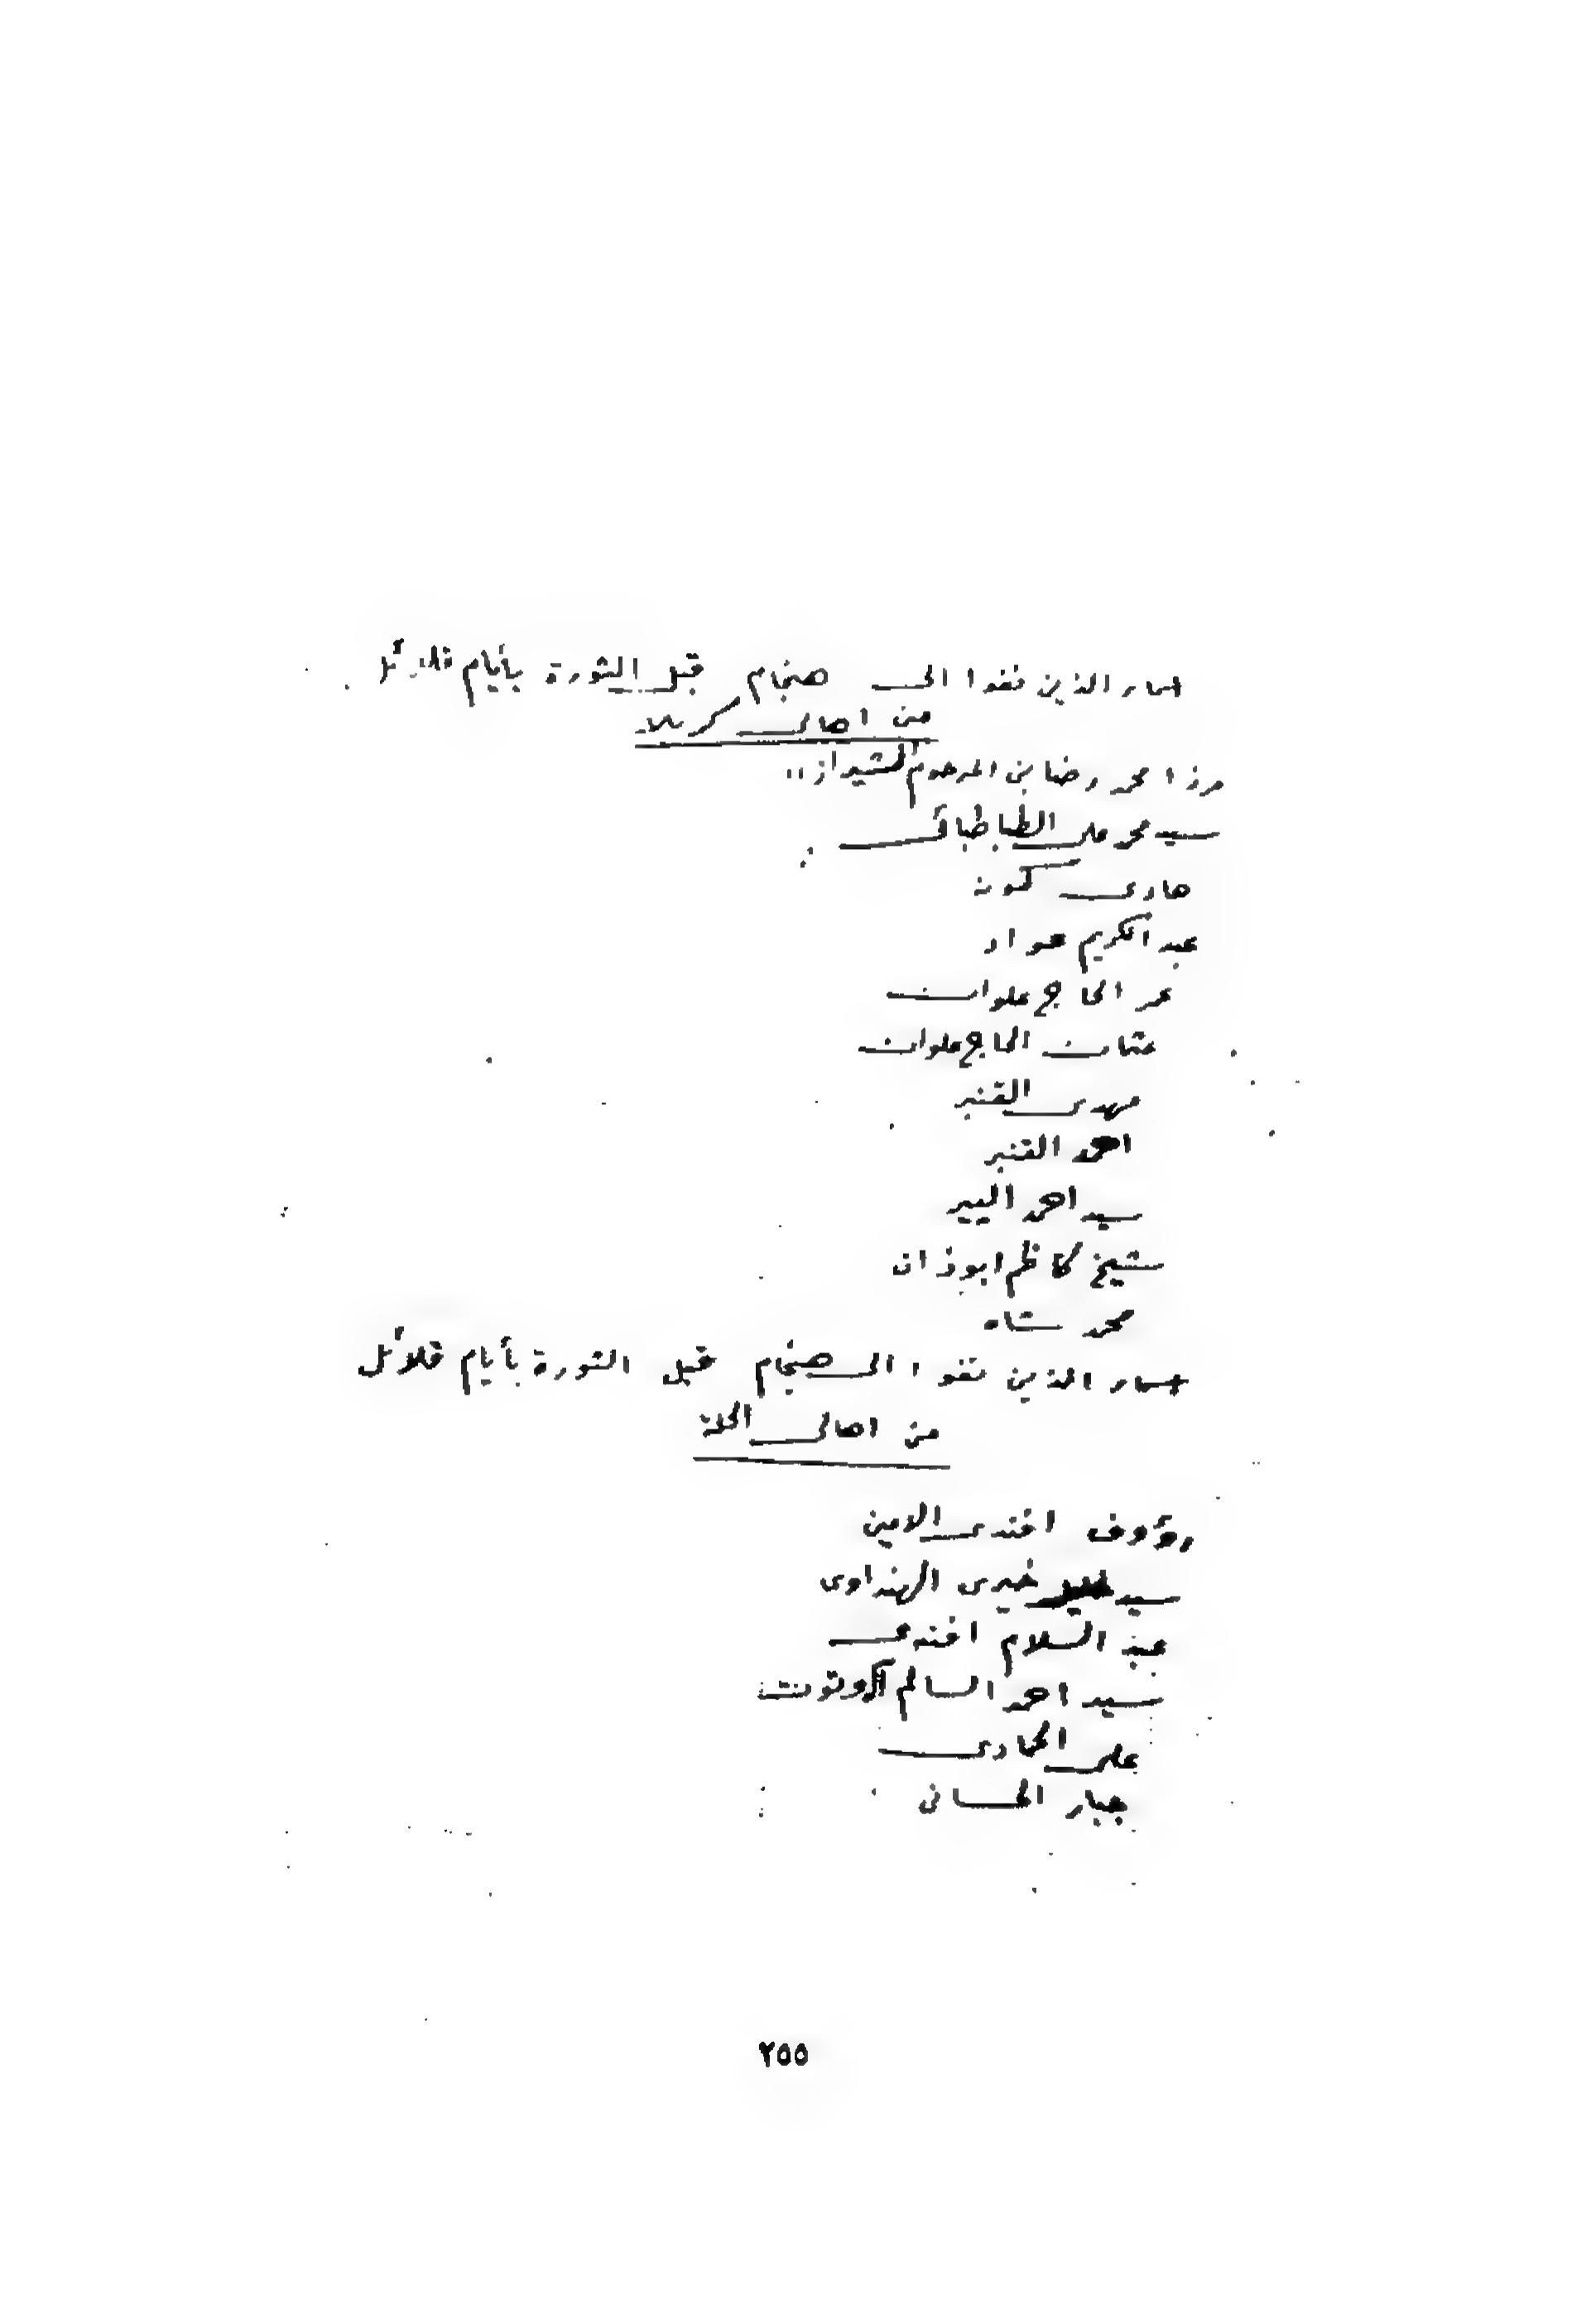 اسماء الذين نفوا الى هنجام قبل الثورة بأيام قلائل
من اهالي كربلاء
مرزا محمد رضا بن المرحوم الشيرازي
سيد محمد علي الطباطبائي
هادي كمونه
عبد الكريم عواد
عمر الحاج علوان
عثمان الحاج علوان
مهدي القنبر
احمد القنبر
سيد احمد البير
شيخ كاظم ابو ذان
محمد شاه
اسماء الذين نفوا الى هنجام قبل الثورة بأيام قلائل
من اهالي الحلة
رؤوف افندي الامين
سيد خيري الهنداوي
عبد السلام افندي
سيد احمد السالم
علي الحمادي
جبار الحساني
٢٥٥